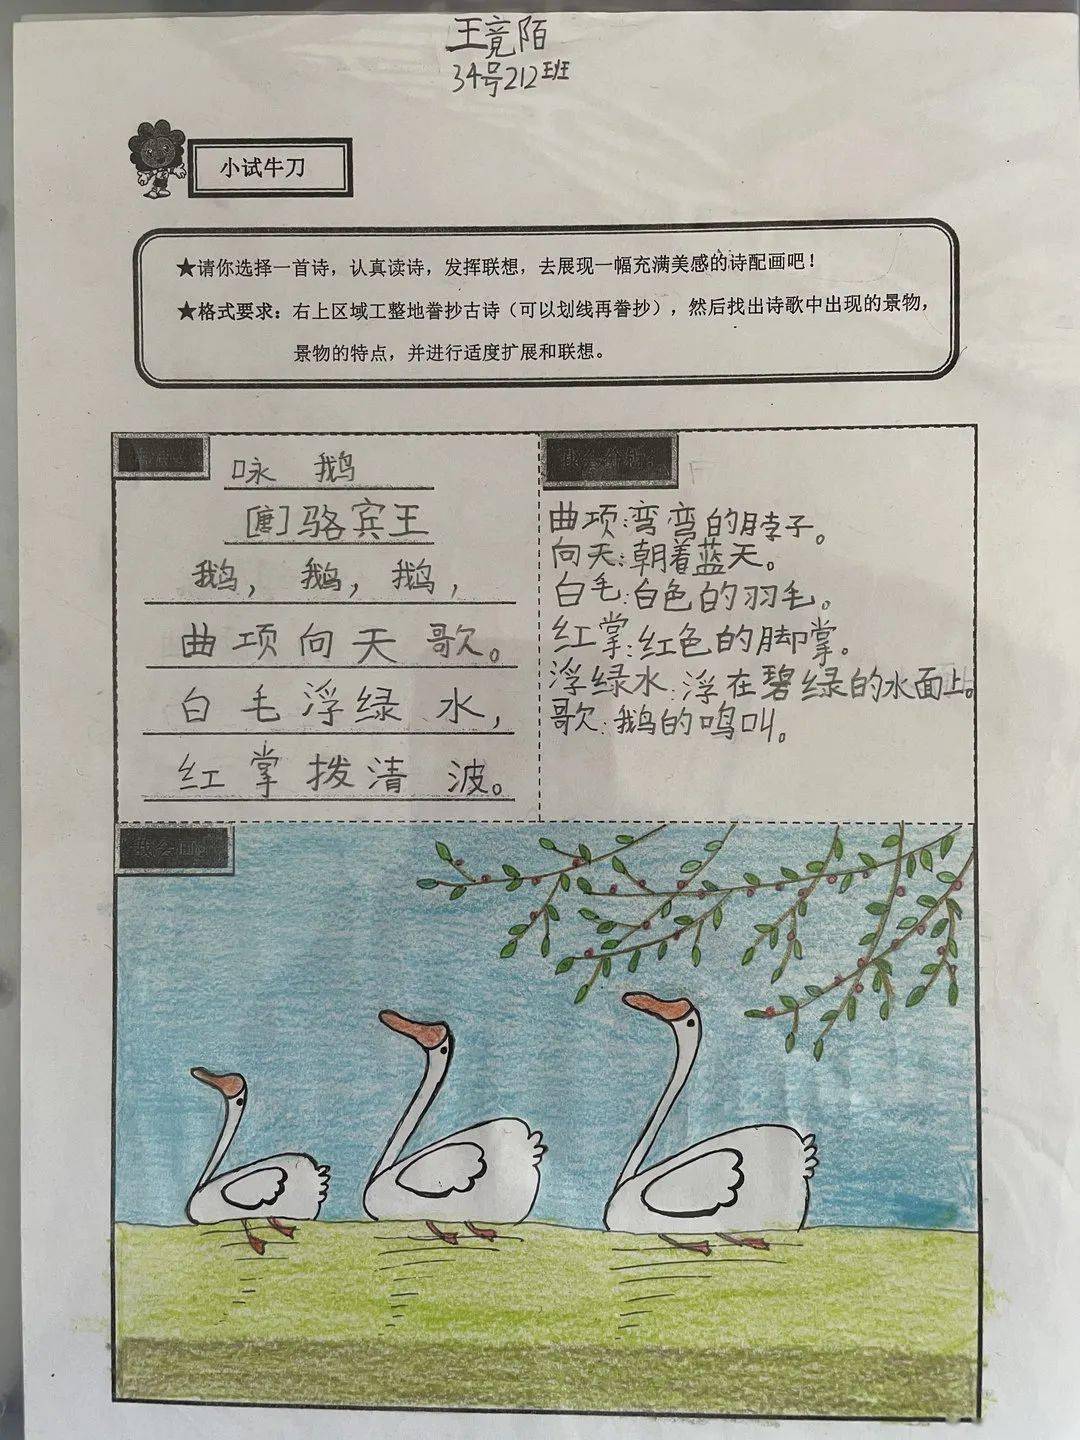 王竟陌
34号212班
小试牛刀
★请你选择一首诗，认真读诗，发挥联想，去展现一幅充满美感的诗配画吧！
★格式要求：右上区域工整地誊抄古诗（可以划线再誊抄），然后找出诗歌中出现的景物，
景物的特点，并进行适度扩展和联想。
咏 鹅
[唐]骆宾王
鹅，鹅，鹅，
曲项向天歌。
白毛浮绿水，
红掌拨清波。
曲项：弯弯的脖子。
向天：朝着蓝天。
白毛：白色的羽毛。
红掌：红色的脚掌。
浮绿水：浮在碧绿的水面上。
歌：鹅的鸣叫。
我会画：